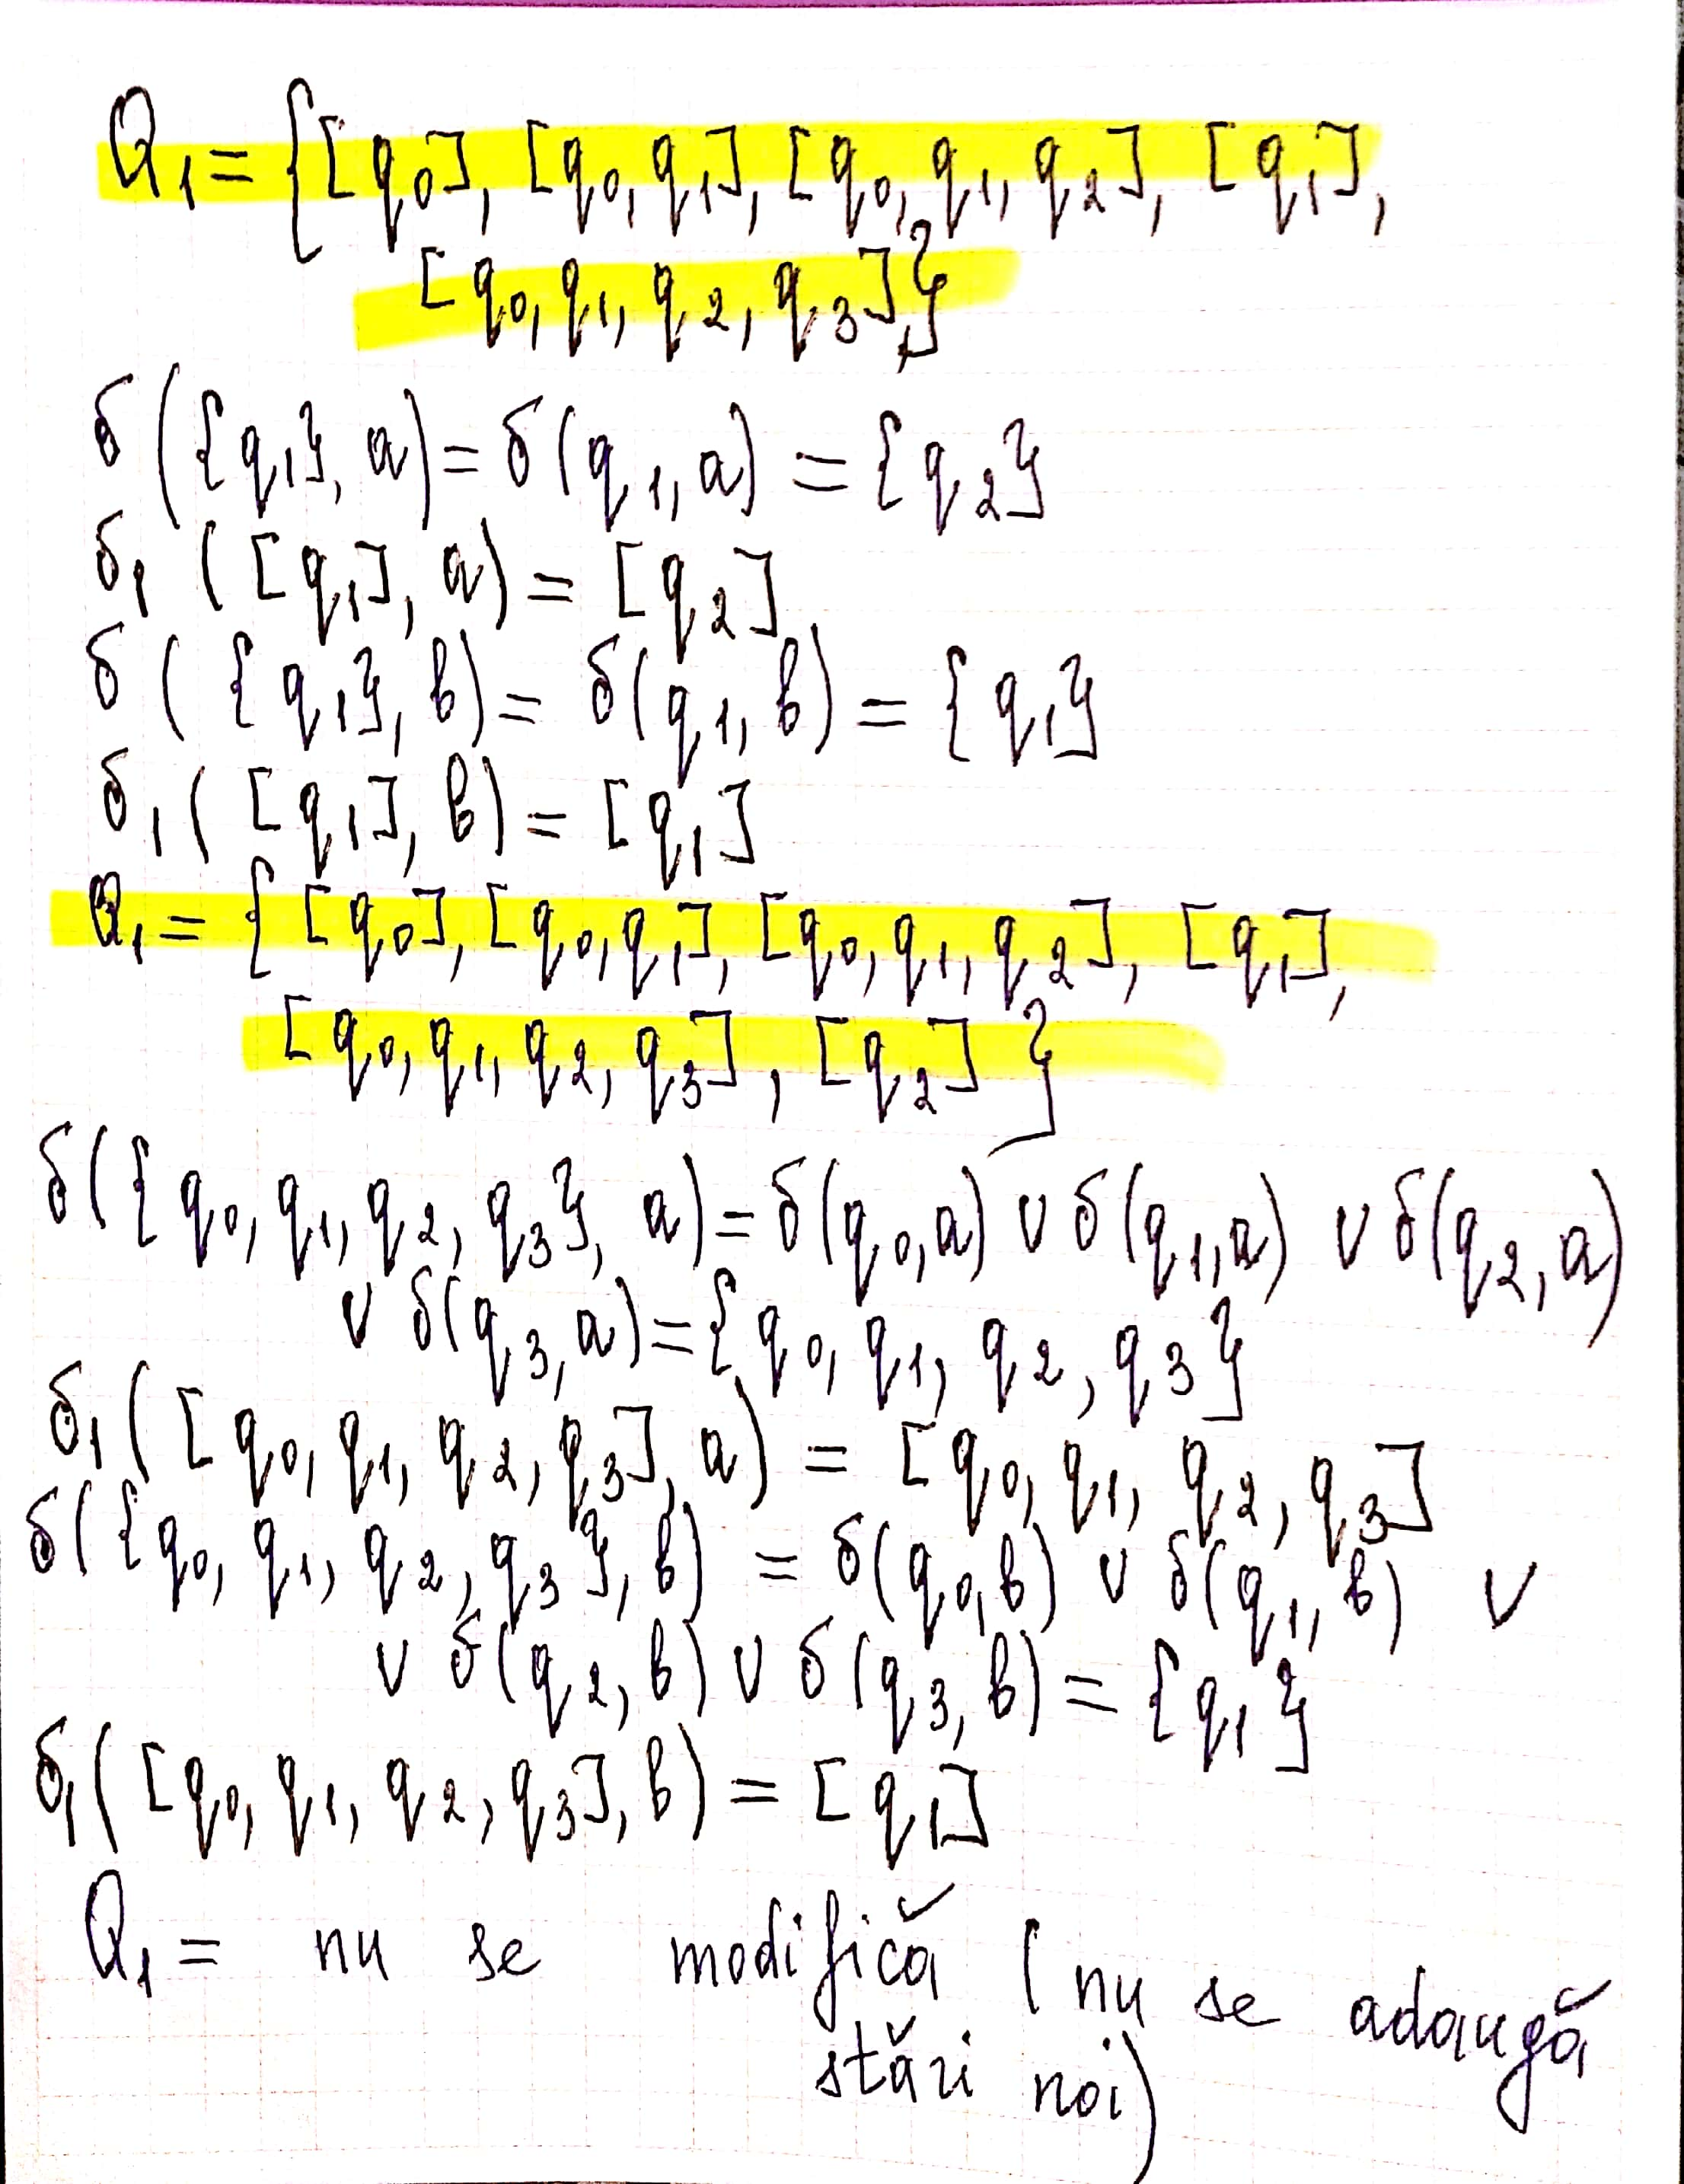 Q₁ = {[q₀], [q₀, q₁], [q₀, q₁, q₂], [q₁],
[q₀, q₁, q₂, q₃],}
δ({q₁}, a) = δ(q₁, a) = {q₂}
δ₁([q₁], a) = [q₂]
δ({q₁}, b) = δ(q₁, b) = {q₁}
δ₁([q₁], b) = [q₁]
Q₁ = {[q₀], [q₀, q₁], [q₀, q₁, q₂], [q₁],
[q₀, q₁, q₂, q₃], [q₂]}
δ({q₀, q₁, q₂, q₃}, a) = δ(q₀, a) ∪ δ(q₁, a) ∪ δ(q₂, a)
∪ δ(q₃, a) = {q₀, q₁, q₂, q₃}
δ₁([q₀, q₁, q₂, q₃], a) = [q₀, q₁, q₂, q₃]
δ({q₀, q₁, q₂, q₃}, b) = δ(q₀, b) ∪ δ(q₁, b) ∪
∪ δ(q₂, b) ∪ δ(q₃, b) = {q₁}
δ₁([q₀, q₁, q₂, q₃], b) = [q₁]
Q₁ = nu se modifică (nu se adaugă
stări noi)